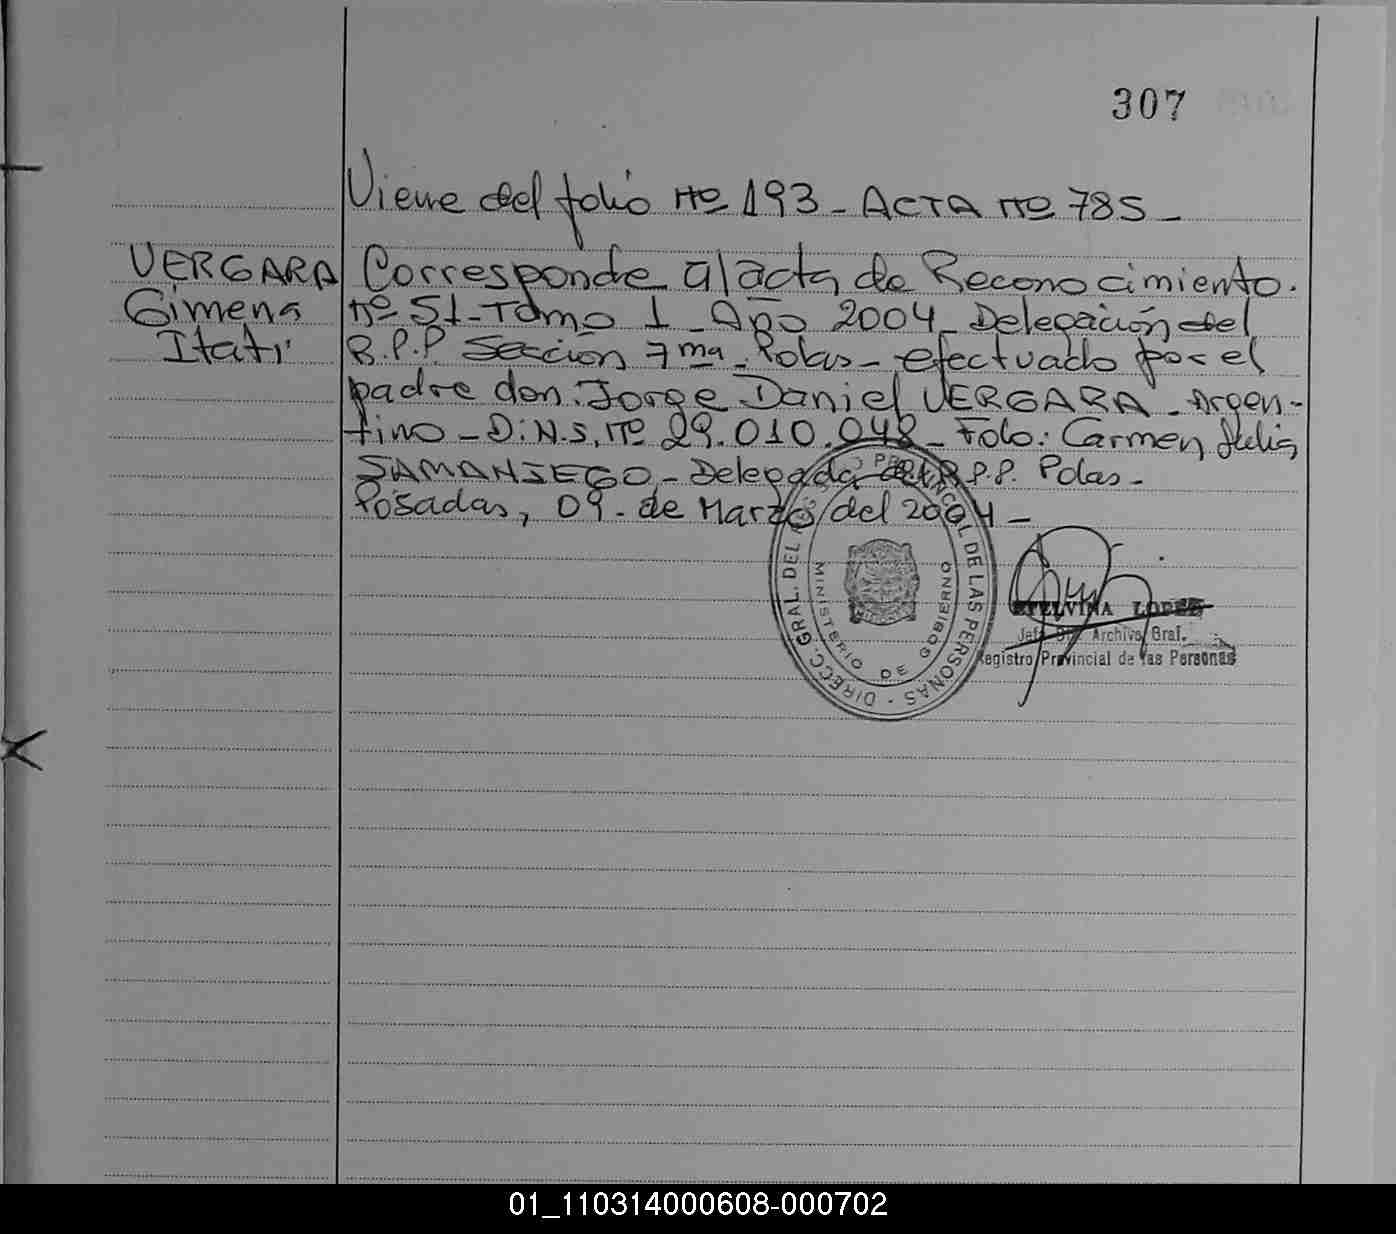 307
Viene del folio Nº 193 - ACTA Nº 785 -
VERGARA Gimena Itati
Corresponde al acta de Reconocimiento.
Nº 51 - Tomo 1 - Año 2004 - Delegación del
R.P.P. Sección 7ma - Pdas - efectuado por el
padre don: Jorge Daniel VERGARA - Argen-
tino - D.N.I. Nº 29.010.048 - Fdo: Carmen Julia
SAMANIEGO - Delegada del R.P.P. Pdas -
Posadas, 09 - de Marzo del 2004 -
DIRECC. GRAL. DEL PROVINCIAL DE LAS PERSONAS
MINISTERIO DE GOBIERNO
ETELVINA LOPEZ
Jefa Archivo Gral.
Registro Provincial de las Personas
01_110314000608-000702